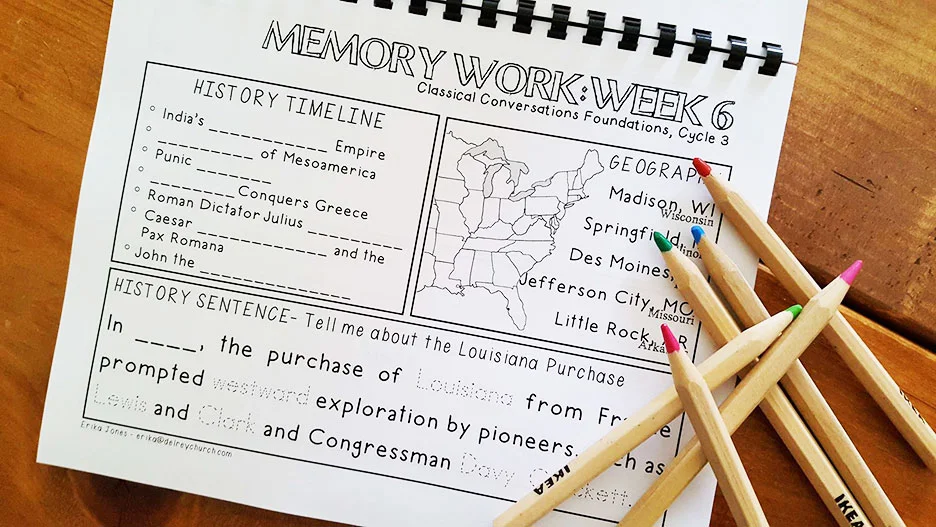 MEMORY WORK: WEEK 6
Classical Conversations Foundations, Cycle 3
HISTORY TIMELINE
India's __________ Empire
__________ of Mesoamerica
Punic ________
________ Conquers Greece
Roman Dictator Julius __________
Caesar __________ and the
Pax Romana
John the ________________
GEOGRAPHY
Madison, WI
Wisconsin
Springfield
Des Moines,
Jefferson City, MO
Missouri
Little Rock,
HISTORY SENTENCE- Tell me about the Louisiana Purchase
In ____, the purchase of Louisiana from France
prompted westward exploration by pioneers, such as
Lewis and Clark and Congressman Davy Crockett.
Erika Jones - erika@delreychurch.com
IKEA
IKEA
IKEA